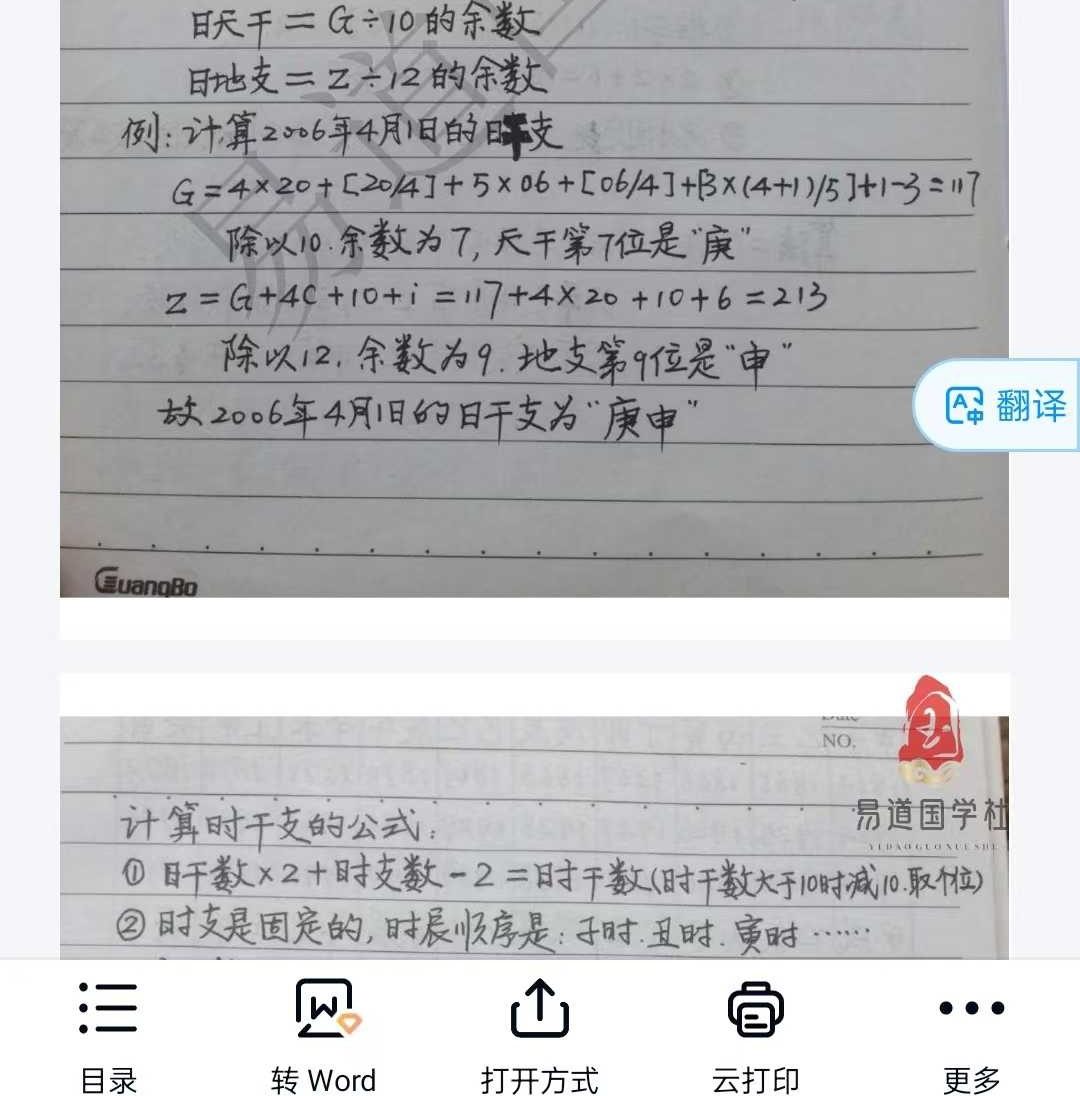 日天干=G÷10的余数
日地支=Z÷12的余数
例:计算2006年4月1日的日干支
G=4×20+[20/4]+5×06+[06/4]+[3×(4+1)/5]+1-3=117
除以10.余数为7,天干第7位是“庚”
Z=G+4C+10+i=117+4×20+10+6=213
除以12.余数为9.地支第9位是“申”
故2006年4月1日的日干支为“庚申”
翻译
GuangBo
NO.
易道国学社
YIDAOGUOXUESHE
计算时干支的公式:
①日干数×2+时支数-2=时干数(时干数大于10时减10.取个位)
②时支是固定的,时辰顺序是:子时.丑时.寅时……
目录 转 Word 打开方式 云打印 更多